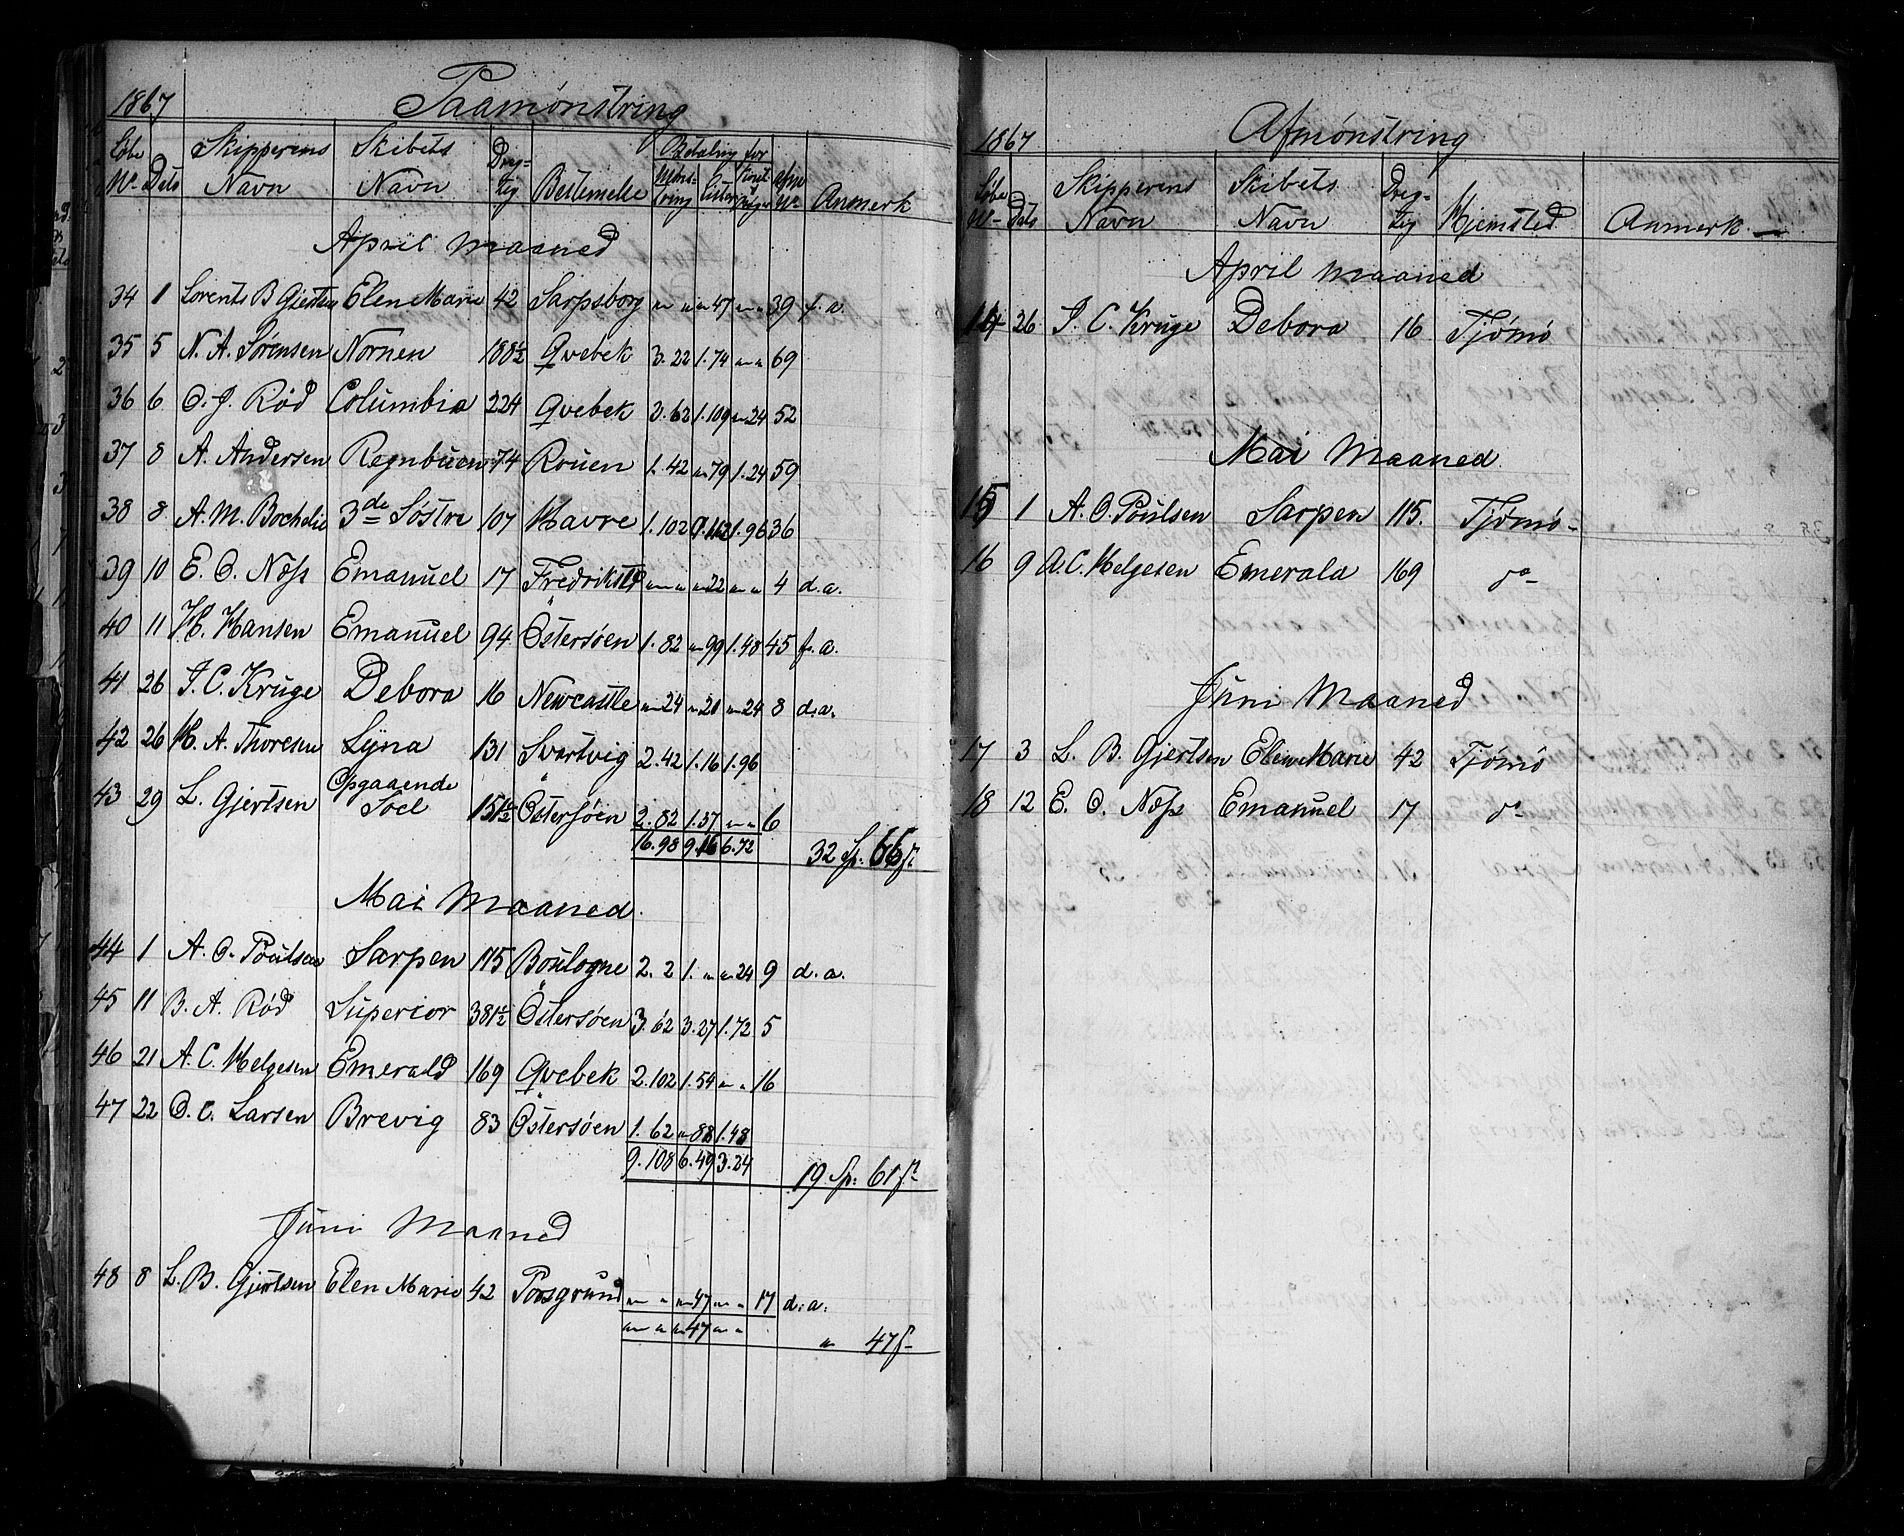 1867 Paamønstring
Løbe No Dato Skipperens Navn Skibets Navn Dræg-tig Bestemelse Betaling for Møns-tring Lister Anmerk
April Maaned
34 1 Lorents B Gjertsen Elen Marie 42 Sarpsborg " " " 47 " " 39 f. a.
35 5 N. A. Sørensen Nornen 188½ Qvebek 3. 22 1. 74 " " 69
36 6 O. J. Rød Columbia 224 Qvebek 3. 62 1. 109 " 24 52
37 8 A. Andersen Regnbuen 74 Rouen 1. 42 " 79 1. 24 59
38 8 A. M. Bochelie 3de Søstre 107 Havre 1. 102 1. 96 36
39 10 E. O. Næss Emanuel 17 Fredrikstd " " " 22 " " 4 d. a.
40 11 H. Hansen Emanuel 94 Östersøen 1. 82 " 99 1. 48 45 f. a.
41 26 J. C. Kruge Debora 16 Newcastle " 24 " 20 " 24 8 d. a.
42 26 H. A. Thoresen Lyna 131 Svartvig 2. 42 1. 16 1. 96
43 29 L. Gjertsen Opgaaende Soel 151½ Östersøen 2. 82 1. 37 " " 6
16. 98 9. 16 6. 72 32 Sp: 66 s
Mai Maaned.
44 1 A. O. Poulsen Sarpen 115 Boulogne 2. 2 1. " " 24 9 d. a.
45 11 B. A. Rød Superior 381½ Östersøen 3. 62 3. 27 1. 72 5
46 21 A. C. Helgesen Emerald 169 Qvebek 2. 102 1. 54 " " 16
47 22 O. C. Larsen Brevig 83 Östersøen 1. 62 " 88 1. 48
9. 108 6. 49 3. 24 19 Sp: 61 s
Juni Maaned
48 8 L. B. Gjertsen Elen Marie 42 Porsgrund " " " 47 " " 17 d. a.
" " " 47 " " " 47 s
1867 Afmønstring
Løbe No Dato Skipperens Navn Skibets Navn Dræg-tig Hjemsted Anmerk
April Maaned
14 26 J. C. Kruge Debora 16 Tjømø
Mai Maaned
15 1 A. O. Poulsen Sarpen 115. Tjømø
16 9 A. C. Helgesen Emerald 169 do
Juni Maaned
17 3 L. B. Gjertsen Elen Marie 42 Tjømø
18 12 E. O. Næss Emanuel 17 do